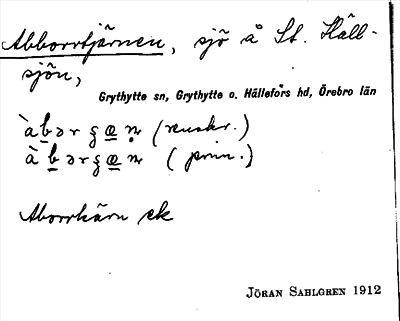 Abborrtjärnen, sjö å St. Häll-
sjön,
Grythytte sn, Grythytte o. Hällefors hd, Örebro län
(runskr.)
(prim.)
Aborrkärn ek
JÖRAN SAHLGREN 1912